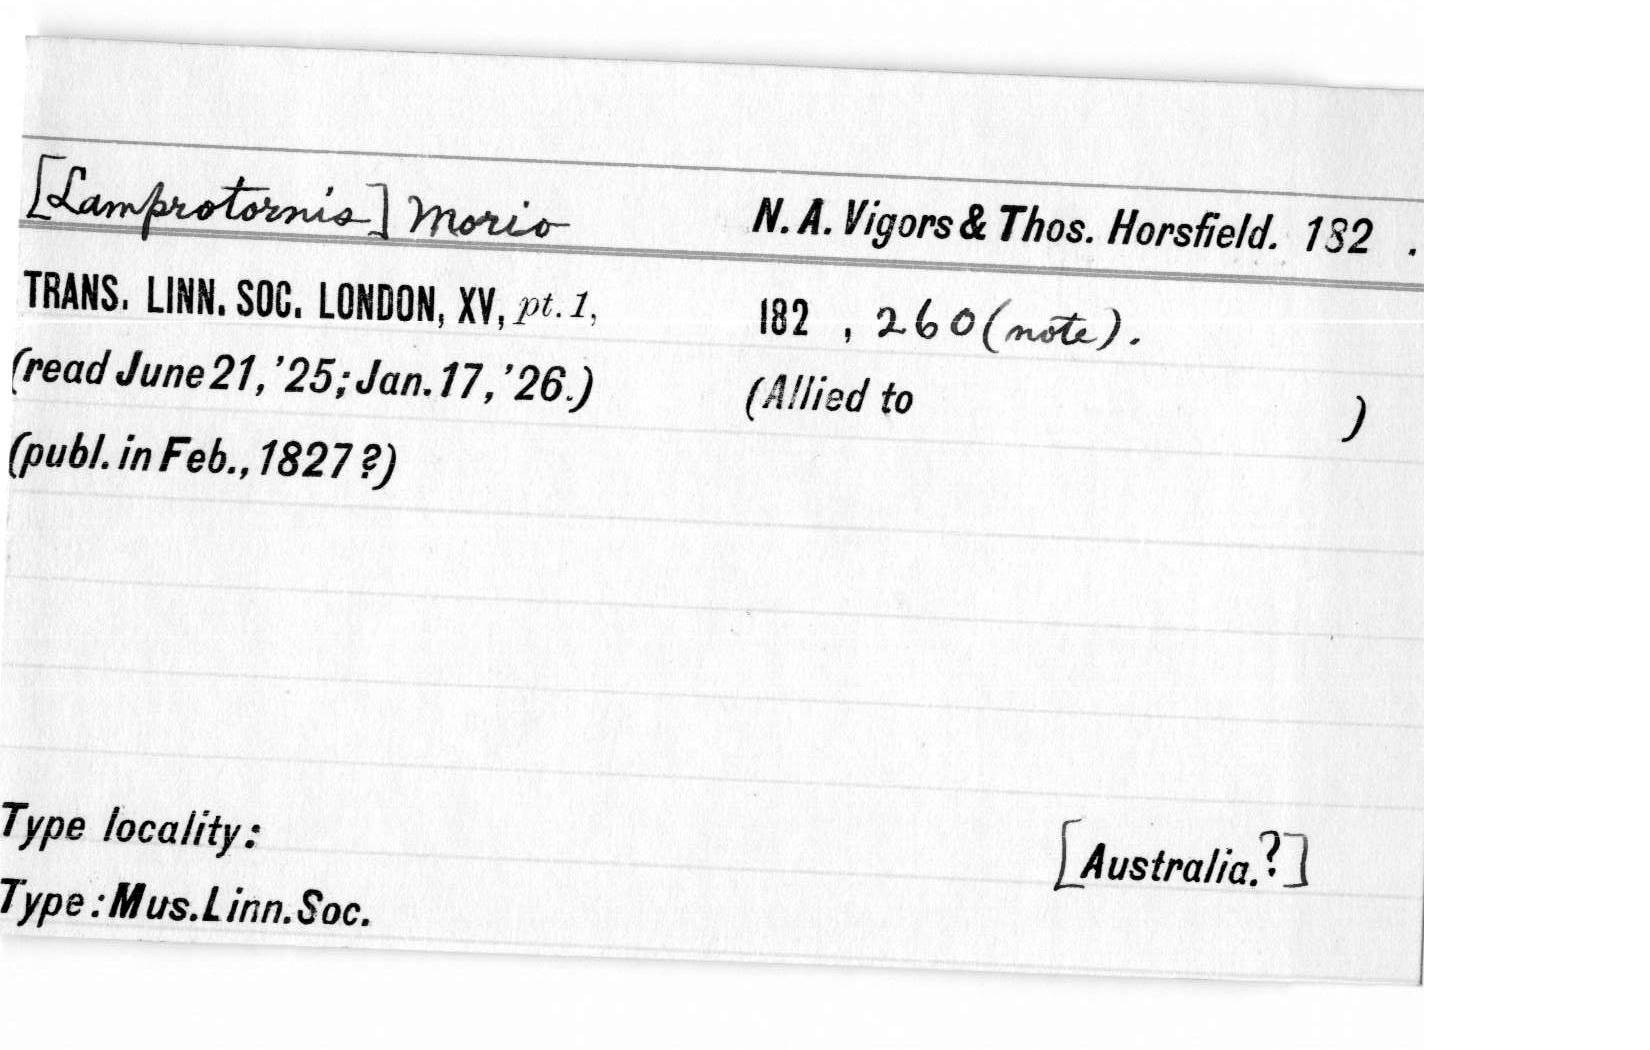 [Lamprotornis] Morio N. A. Vigors & Thos. Horsfield. 182 .
TRANS. LINN. SOC. LONDON, XV, pt. 1, 182 , 260 (note).
(read June 21, '25; Jan. 17, '26.) (Allied to )
(publ. in Feb., 1827 ?)
Type locality: [Australia.?]
Type: Mus. Linn. Soc.